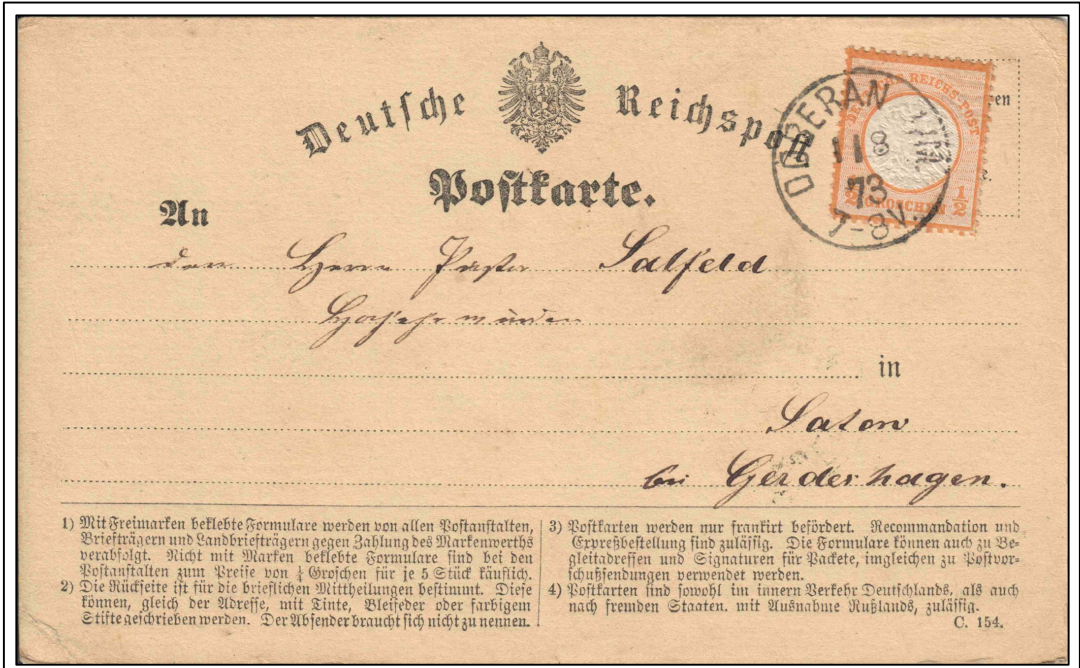 Deutsche Reichspost
Postkarte.
DEUTSCHE REICHS-POST
½ GROSCHEN ½
DOBERAN
11 8
73
7-8V.
An
den Herrn Pastor Salfeld
Hochehrwürden
in
Satow
bei Gerdeshagen.
1) Mit Freimarken beklebte Formulare werden von allen Postanstalten,
Briefträgern und Landbriefträgern gegen Zahlung des Markenwerths
verabfolgt. Nicht mit Marken beklebte Formulare sind bei den
Postanstalten zum Preise von ¼ Groschen für je 5 Stück käuflich.
2) Die Rückseite ist für die brieflichen Mittheilungen bestimmt. Diese
können, gleich der Adresse, mit Tinte, Bleifeder oder farbigem
Stifte geschrieben werden. Der Absender braucht sich nicht zu nennen.
3) Postkarten werden nur frankirt befördert. Recommandation und
Expreßbestellung sind zulässig. Die Formulare können auch zu Be-
gleitadressen und Signaturen für Packete, imgleichen zu Postvor-
schußsendungen verwendet werden.
4) Postkarten sind sowohl im innern Verkehr Deutschlands, als auch
nach fremden Staaten, mit Ausnahme Rußlands, zulässig.
C. 154.